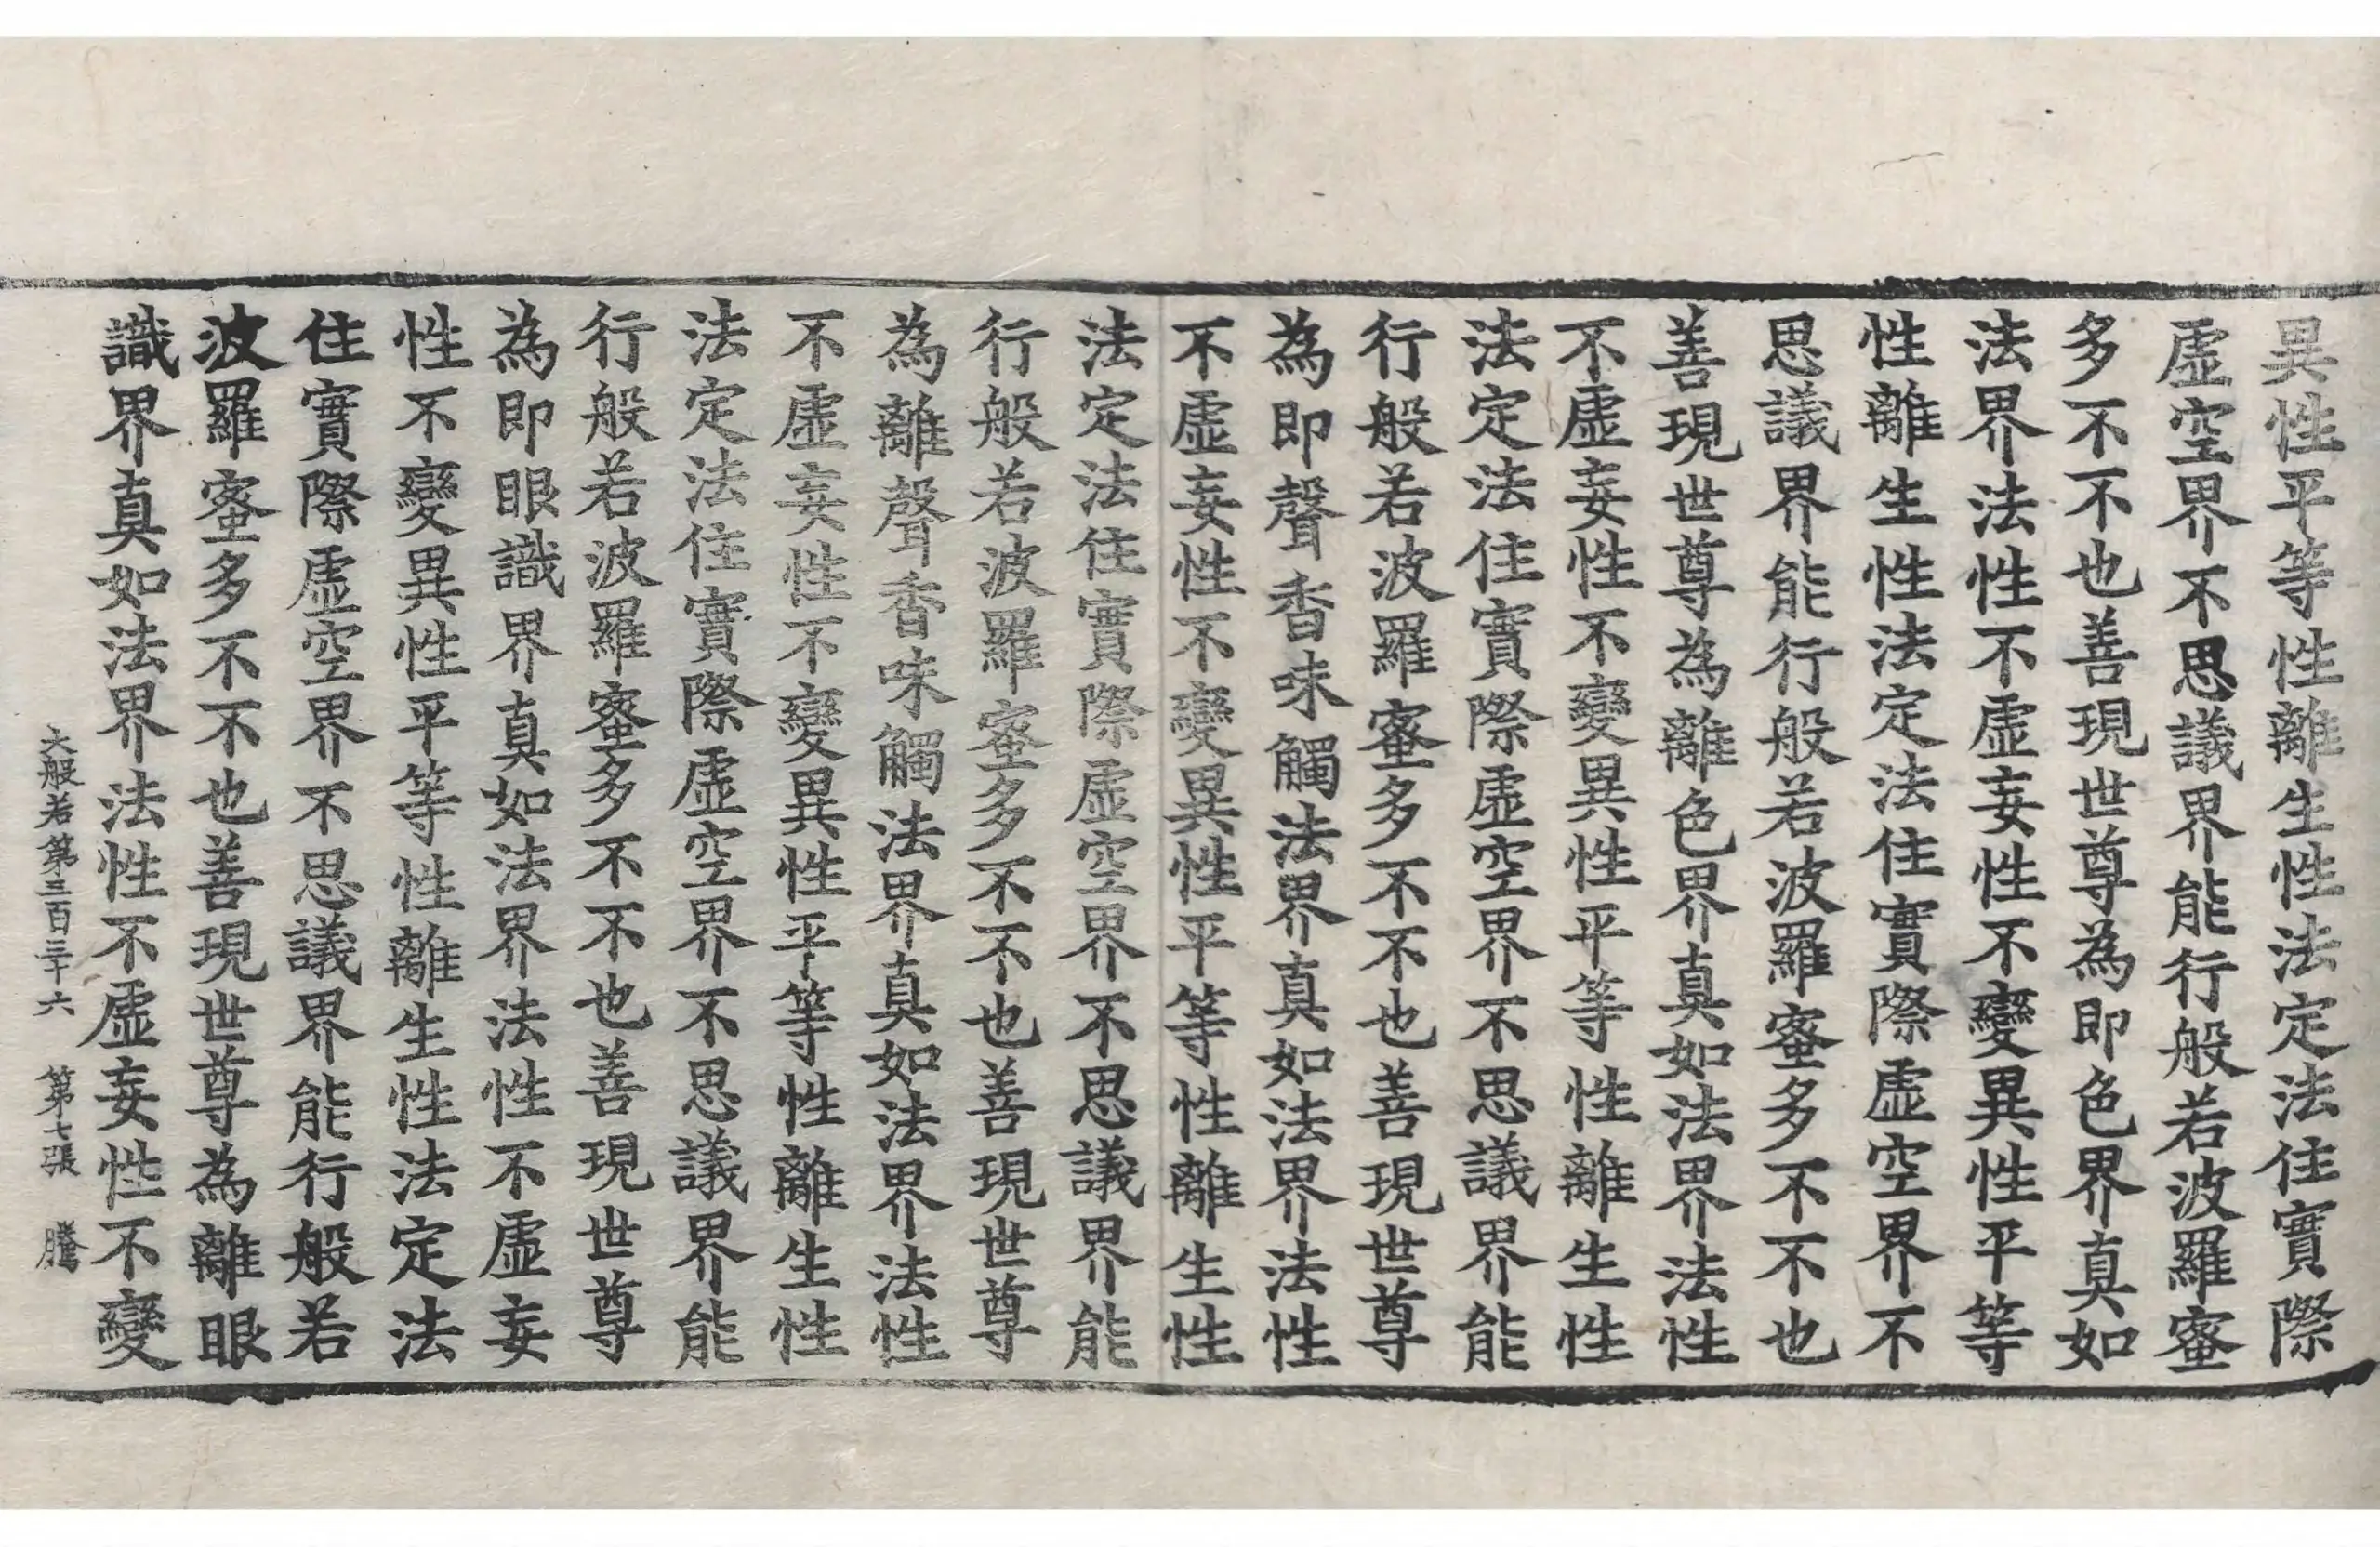 異性平等性離生性法定法住實際
虛空界不思議界能行般若波羅蜜
多不不也善現世尊為即色界真如
法界法性不虛妄性不變異性平等
性離生性法定法住實際虛空界不
思議界能行般若波羅蜜多不不也
善現世尊為離色界真如法界法性
不虛妄性不變異性平等性離生性
法定法住實際虛空界不思議界能
行般若波羅蜜多不不也善現世尊
為即聲香味觸法界真如法界法性
不虛妄性不變異性平等性離生性
法定法住實際虛空界不思議界能
行般若波羅蜜多不不也善現世尊
為離聲香味觸法界真如法界法性
不虛妄性不變異性平等性離生性
法定法住實際虛空界不思議界能
行般若波羅蜜多不不也善現世尊
為即眼識界真如法界法性不虛妄
性不變異性平等性離生性法定法
住實際虛空界不思議界能行般若
波羅蜜多不不也善現世尊為離眼
識界真如法界法性不虛妄性不變
大般若第三百三十六 第七張 騰